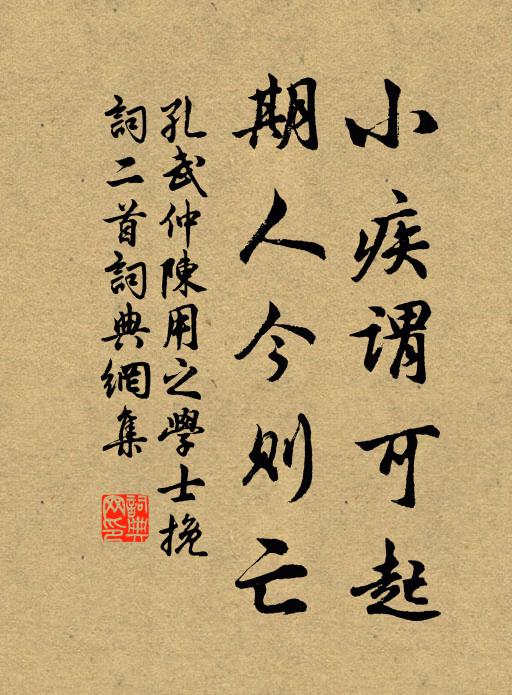 小疾谓可起
期人今则亡
孔武仲陳用之學士挽
詞二首詞典網集
詞典
网印